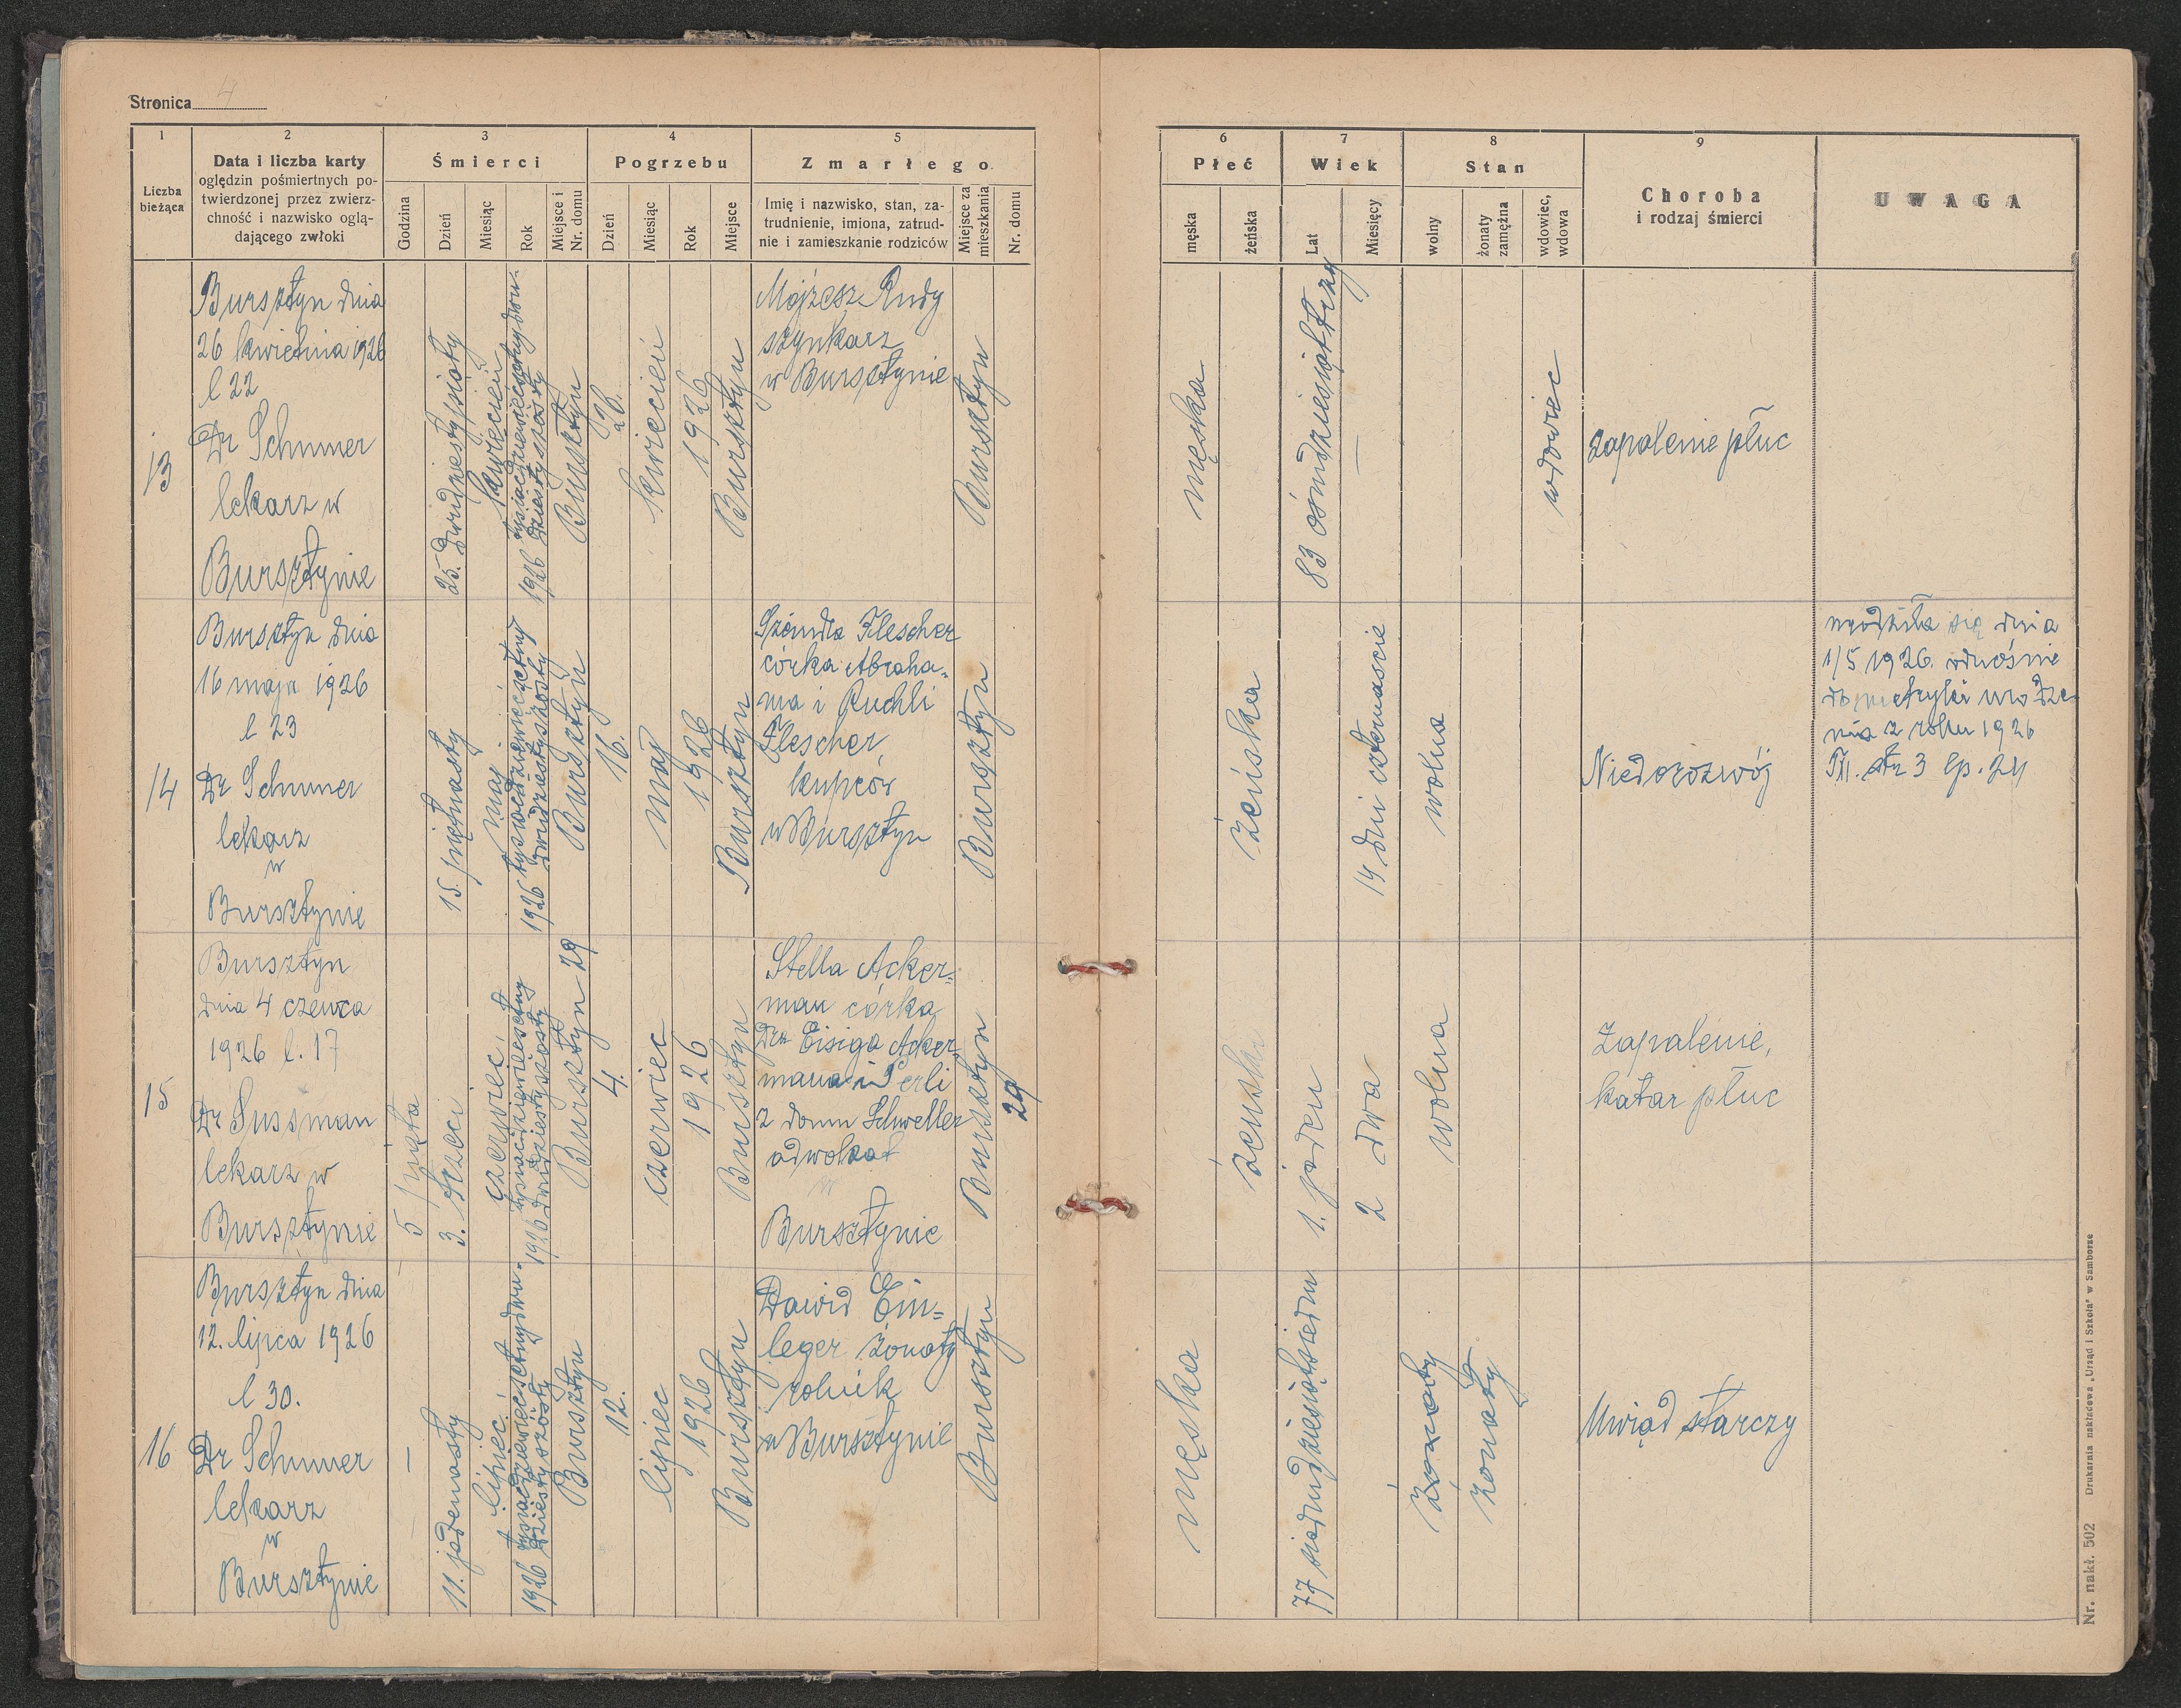 Stronica 4
1
2
3
4
5
Liczba
bieżąca
Data i liczba karty
oględzin pośmiertnych po-
twierdzonej przez zwierz-
chność i nazwisko oglą-
dającego zwłoki
Śmierci
Godzina
Dzień
Miesiąc
Rok
Miejsce i
Nr. domu
Pogrzebu
Dzień
Miesiąc
Rok
Miejsce
Zmarłego
Imię i nazwisko, stan, za-
trudnienie, imiona, zatrud-
nie i zamieszkanie rodziców
Miejsce za
mieszkania
Nr. domu
6
7
8
9
Płeć
męska
żeńska
Wiek
Lat
Miesięcy
Stan
wolny
żonaty
zamężna
wdowiec,
wdowa
Choroba
i rodzaj śmierci
UWAGA
13
Bursztyn dnia
26 kwietnia 1926
l 22
Dr Schmner
lekarz w
Bursztynie
25. dwudziestypiąty
kwiecień
1926 tysiącdziewięćsetnydwu-
dziestyszósty
Bursztyn
26.
kwiecień
1926
Bursztyn
Mojżesz Rudy
szynkarz
w Bursztynie
Bursztyn
męska
83 ośmdziesiąttrzy
—
wdowiec
zapalenie płuc
14
Bursztyn dnia
16 maja 1926
l 23
Dr Schmner
lekarz
w
Bursztynie
15. piętnasty
maj
1926 tysiącdziewięćsetny
dwudziestyszósty
Bursztyn
16.
maj
1926
Bursztyn
Flescher
córka Abraha-
ma i Ruchli
Flescher
kupców
w Bursztyn
Bursztyn
żeńska
14 dni czternaście
wolna
Niedorozwój
urodziła się dnia
1/5 1926. odnośnie
do metryki urodze-
nia z roku 1926
str 3 lp. 24
15
Bursztyn
dnia 4 czerwca
1926 l. 17
Dr Sussman
lekarz w
Bursztynie
5 piąta
3. trzeci
czerwiec
1926 tysiącdziewięćsetny
dwudziestyszósty
Bursztyn 29
4.
czerwiec
1926
Bursztyn
Stella Acker-
man córka
Dra Eisiga Acker
mana i Perli
z domu Schweller
adwokat
w
Bursztynie
Bursztyn
29
żeńska
1. jeden
2 dwa
wolna
Zapalenie,
katar płuc
16
Bursztyn dnia
12. lipca 1926
l 30.
Dr Schmner
lekarz
w
Bursztynie
—
11. jedenasty
lipiec
1926 tysiącdziewięćsetnydwu-
dziestyszósty
Bursztyn
12.
lipiec
1926
Bursztyn
Dawid Ein-
leger żonaty
rolnik
w Bursztynie
Bursztyn
męska
77 siedmdziesiątsiedm
żonaty
żonaty
Uwiąd starczy
Nr. nakł. 502 Drukarnia nakładowa „Urząd i Szkoła" w Samborze